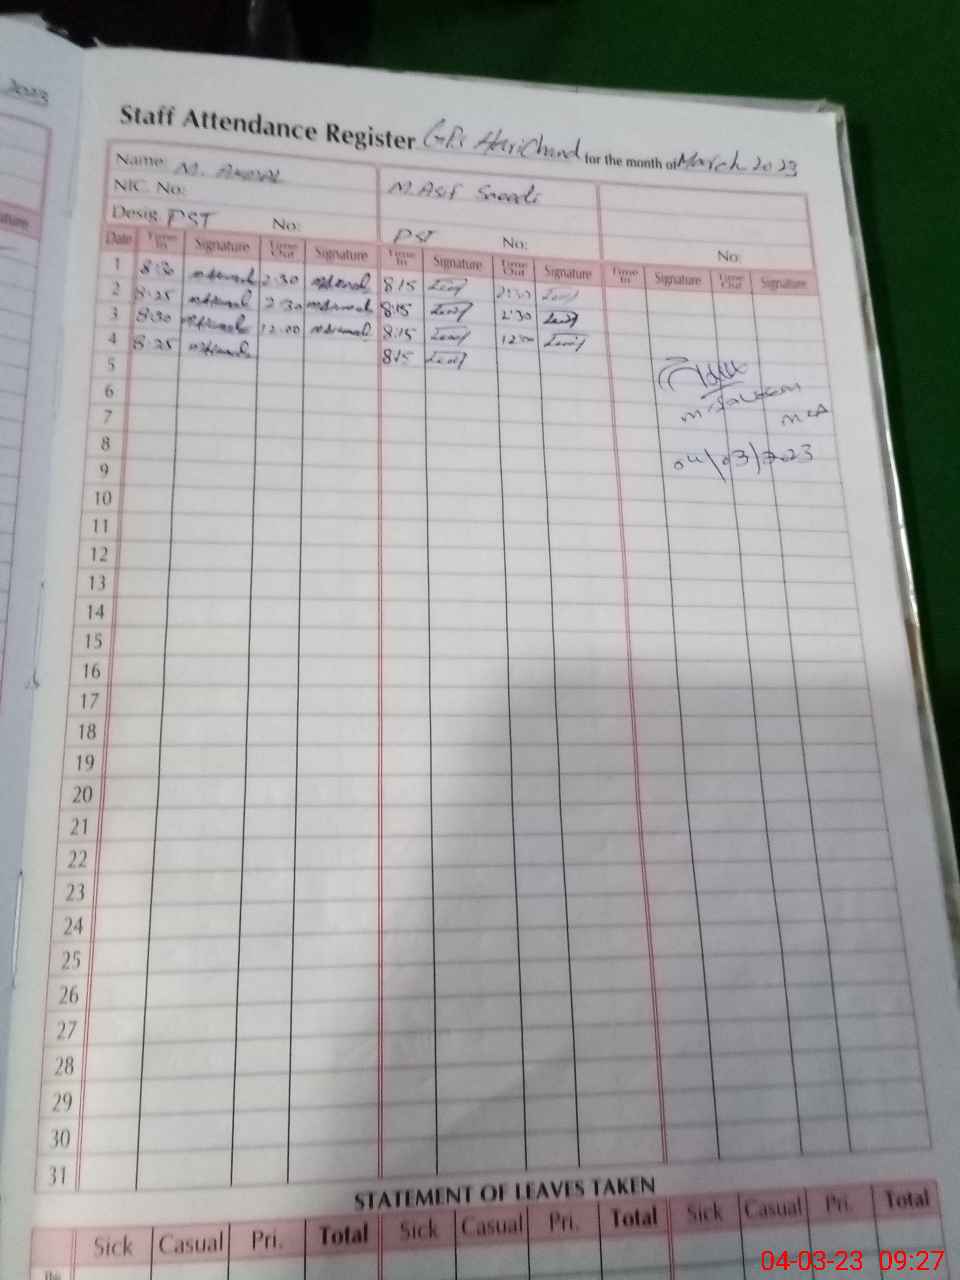 2023
Staff Attendance Register GPS HariChand for the month of March 2023
Name: M. M. Asif
NIC. No:
Desig. PST No: PST No: No:
Date Time In Signature Time Out Signature Time In Signature Time Out Signature Time In Signature Time Out Signature
1 8:30 2:30 8:15 2:30
2 8:25 2:30 8:15 2:30
3 8:30 12:00 8:15 12:00
4 8:25 8:15
5
6
7
8
9 04/03/2023
10
11
12
13
14
15
16
17
18
19
20
21
22
23
24
25
26
27
28
29
30
31
STATEMENT OF LEAVES TAKEN
Sick Casual Pri. Total Sick Casual Pri. Total Sick Casual Pri. Total
04-03-23 09:27